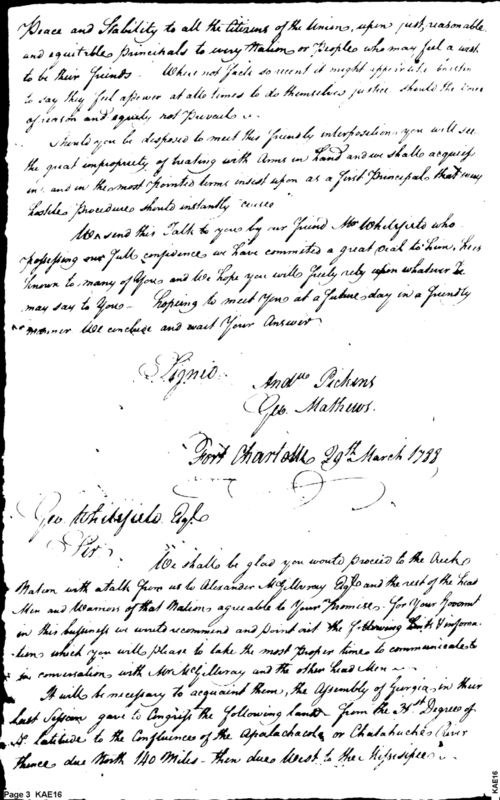 Peace and Stability to all the Citizens of the Union, upon just, reasonable
and equitable Principals to every Nation or People who may feel a wish
to be their friends. Where not facts so recent it might appear like
to say they feel a power at all times to do themselves justice should the
of reason and equity not Prevail.
Should you be disposed to meet this friendly interposition, you will see
the great impropriety of treating with Arms in Hand and we shall acquiesce
in, and in the most pointed terms insist upon as a first Principal that every
hostile Procedure should instantly cease
We send this Talk to you by our friend Mr Whitefield who
possessing our full confidence we have committed a great deal to him, he is
known to many of you and We hope you will freely rely upon whatever he
may say to You - hoping to meet You at a future day in a friendly
manner We conclude and wait Your Answer
Signed
Andw Pickens
Geo. Mathews.
Fort Charlotte 29th March 1788
Geo. Whitefield Esqr
Sir
We shall be glad you would proceed to the Creek
Nation with a talk from us to Alexander McGillivray Esqr and the rest of the head
Men and Warriors of that Nation agreable to Your Promise. For Your Governmt
in this business we would recommend and point out the following informa-
tion which you will please to take the most proper time to communicate
in conversation with Mr McGillivray and the other head Men.
It will be necessary to acquaint them, the Assembly of Georgia in their
last Session gave to Congress the following land from the 31st Degrees of
N. latitude to the Confluence of the Apalachacola or Chatahuchee River
thence due North 140 Miles - then due West to the Missisipee
Page 3 KAE16
KAE16